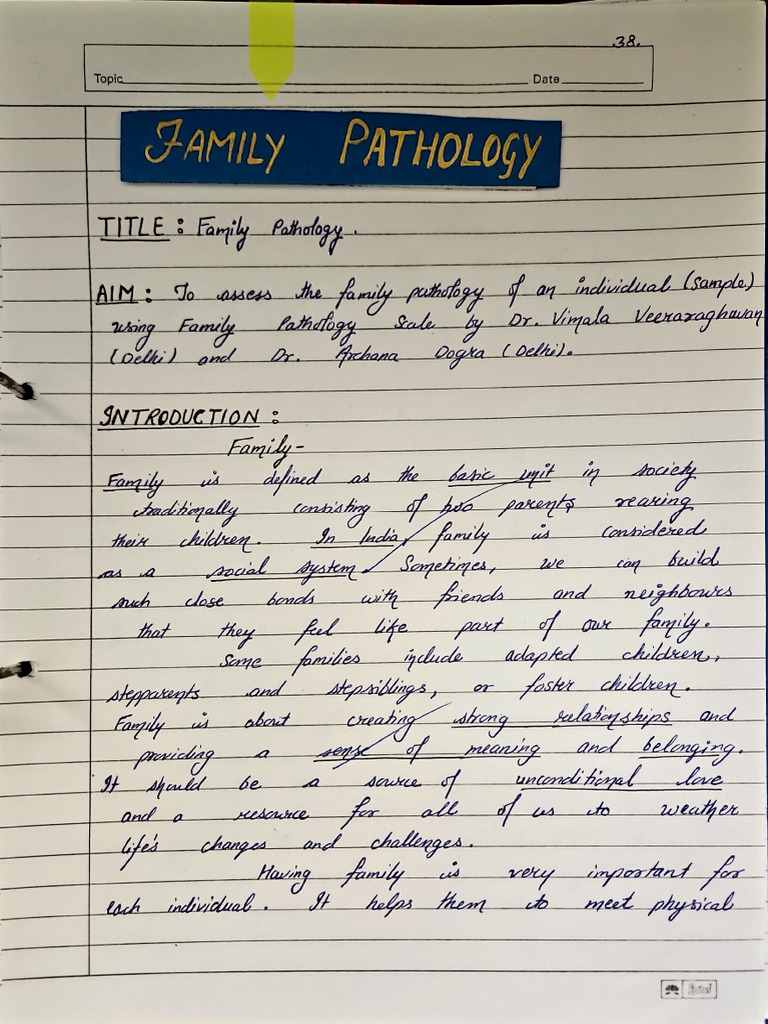 38.
Topic Date
FAMILY PATHOLOGY
TITLE : Family Pathology.
AIM : To assess the family pathology of an individual (sample)
using Family Pathology Scale by Dr. Vimala Veeraraghavan
(Delhi) and Dr. Archana Dogra (Delhi).
INTRODUCTION :
Family-
Family is defined as the basic unit in society
traditionally consisting of two parents rearing
their children. In India, family is considered
as a social system. Sometimes, we can build
such close bonds with friends and neighbours
that they feel like part of our family.
Some families include adapted children,
stepparents and stepsiblings, or foster children.
Family is about creating strong relationships and
providing a sense of meaning and belonging.
It should be a source of unconditional love
and a resource for all of us to weather
life's changes and challenges.
Having family is very important for
each individual. It helps them to meet physical